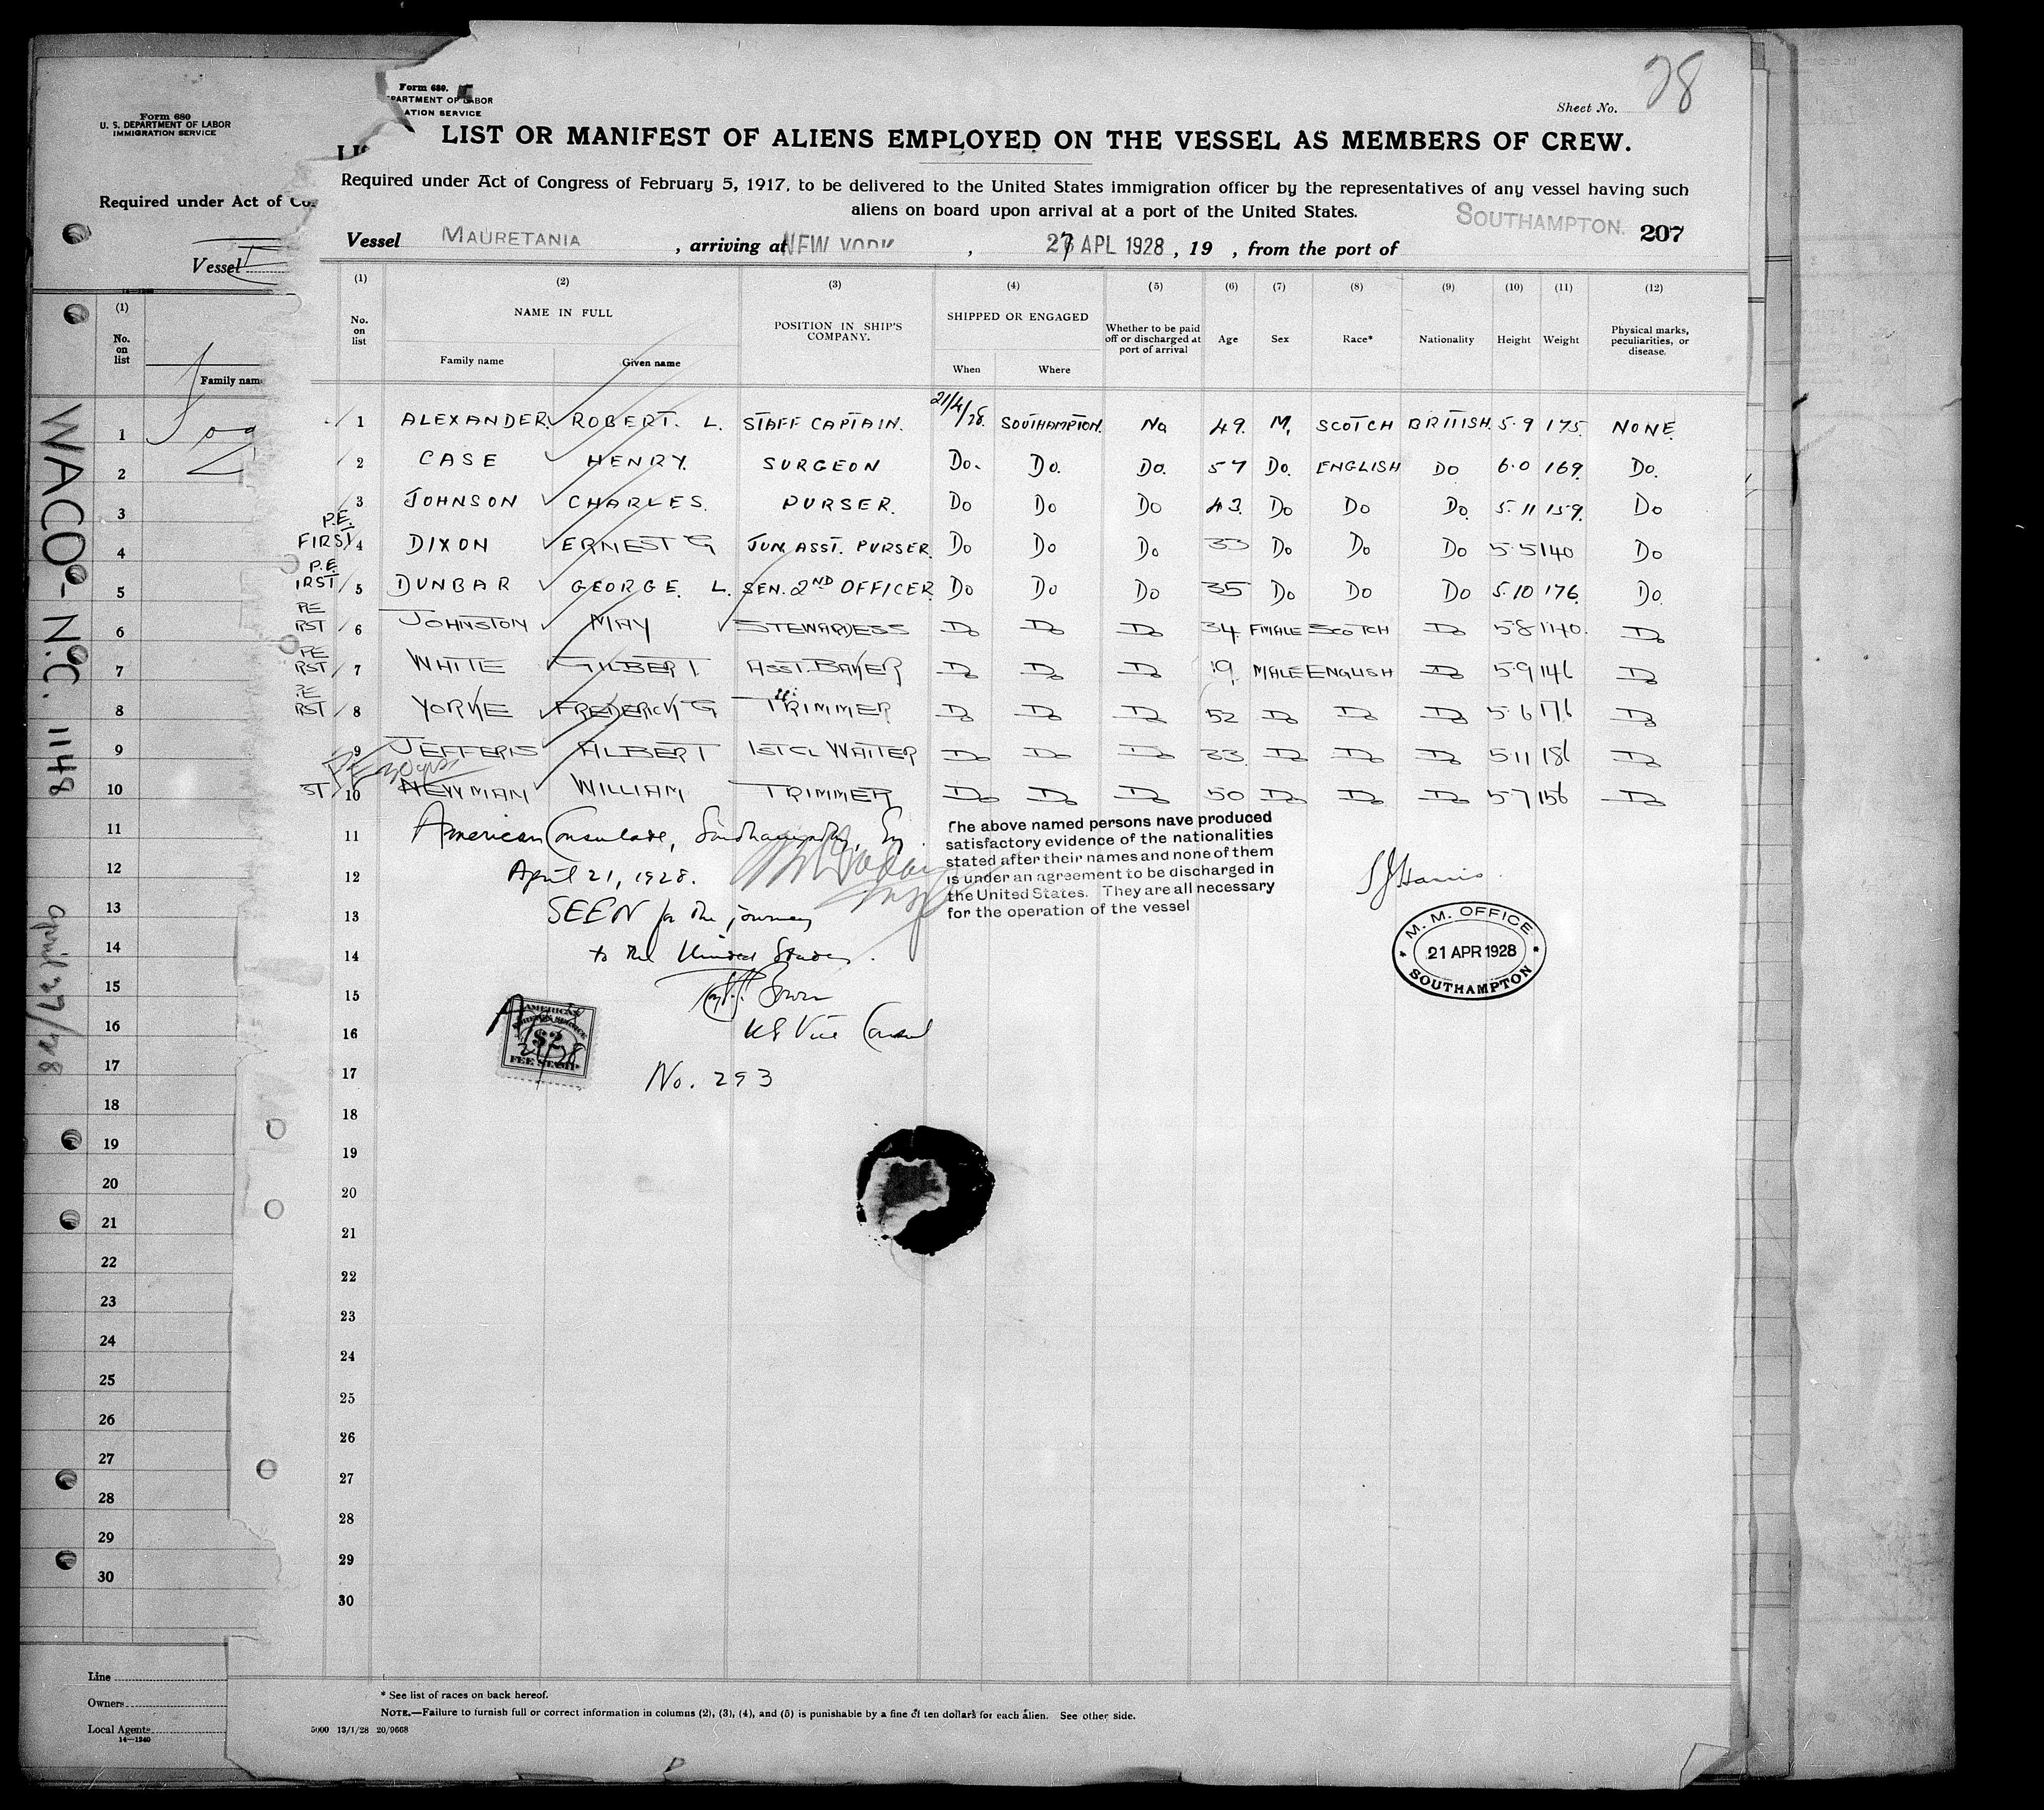 Form 680
U. S. DEPARTMENT OF LABOR
IMMIGRATION SERVICE
Required under Act of Co
Vessel
(1)
No.
on
list
Family nam
WACO - N.C. 1148
April 27/28
1
2
3
4
5
6
7
8
9
10
11
12
13
14
15
16
17
18
19
20
21
22
23
24
25
26
27
28
29
30
Line
Owners
Local Agents
14—1240
Form 680.
PARTMENT OF LABOR
ATION SERVICE
Sheet No. 28
LIST OR MANIFEST OF ALIENS EMPLOYED ON THE VESSEL AS MEMBERS OF CREW.
Required under Act of Congress of February 5, 1917, to be delivered to the United States immigration officer by the representatives of any vessel having such
aliens on board upon arrival at a port of the United States.
Vessel MAURETANIA , arriving at NEW YORK , 27 APL 1928 , 19 , from the port of SOUTHAMPTON. 207
(1) (2) (3) (4) (5) (6) (7) (8) (9) (10) (11) (12)
No. on list NAME IN FULL Family name Given name POSITION IN SHIP'S COMPANY. SHIPPED OR ENGAGED When Where Whether to be paid off or discharged at port of arrival Age Sex Race* Nationality Height Weight Physical marks, peculiarities, or disease.
1 ALEXANDER. ROBERT. L. STAFF CAPTAIN. 21/4/28. SOUTHAMPTON. No 49. M. SCOTCH BRITISH. 5.9 175. NONE.
2 CASE HENRY. SURGEON Do. Do. Do. 57 Do. ENGLISH Do 6.0 169. Do.
3 JOHNSON CHARLES. PURSER. Do Do Do 43. Do Do Do. 5.11 159. Do
P.E. FIRST 4 DIXON ERNEST G JUN. ASST. PURSER. Do Do Do 33 Do Do Do 5.5 140 Do
P.E. IRST 5 DUNBAR GEORGE. L. SEN. 2ND OFFICER Do Do Do 35 Do Do Do 5.10 176. Do.
PE RST 6 JOHNSTON MAY STEWARDESS Do Do Do 34 FMALE SCOTCH Do 5.8 140. Do
PE RST 7 WHITE GILBERT ASST. BAKER Do Do Do 19 MALE ENGLISH Do 5.9 146 Do
PE RST 8 YORKE FREDERICK G TRIMMER Do Do Do 52 Do Do Do 5.6 176 Do
9 JEFFERIS ALBERT 1ST CL WAITER Do Do Do 33. Do Do Do 5.11 186 Do
ST 10 NEWMAN WILLIAM TRIMMER Do Do Do 50 Do Do Do 5.7 156 Do
11 American Consulate, Southampton, Eng.
12 April 21, 1928.
13 SEEN for the journey
14 to the United States.
15
16 US Vice Consul
17 No. 293
The above named persons have produced
satisfactory evidence of the nationalities
stated after their names and none of them
is under an agreement to be discharged in
the United States. They are all necessary
for the operation of the vessel
S J Harris
M. M. OFFICE
21 APR 1928
SOUTHAMPTON
AMERICAN
$2
FEE STAMP
18
19
20
21
22
23
24
25
26
27
28
29
30
* See list of races on back hereof.
NOTE.—Failure to furnish full or correct information in columns (2), (3), (4), and (5) is punishable by a fine of ten dollars for each alien. See other side.
5000 13/1/28 20/9668